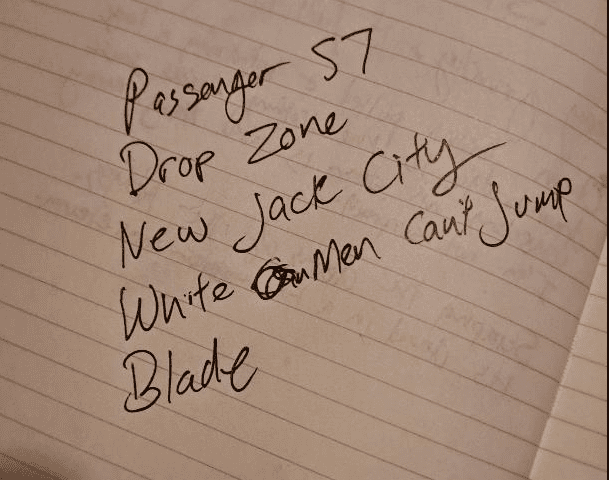 Passenger 57
Drop Zone
New Jack City
White Men Can't Jump
Blade